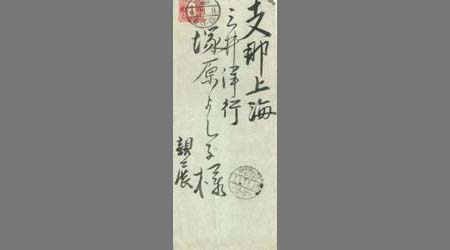 支那上海
三井洋行
塚原よし子様
親展